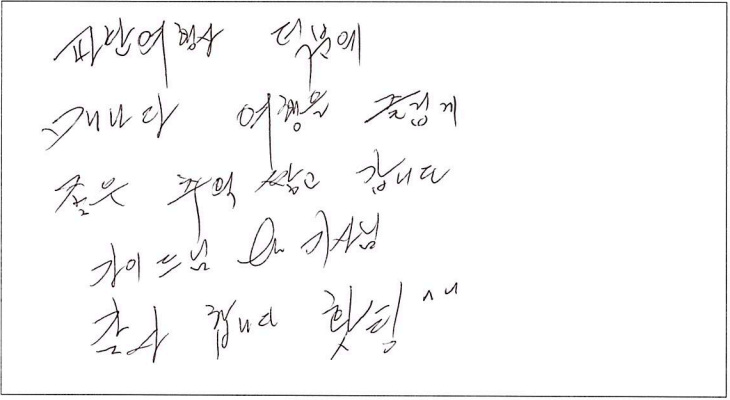 파란여행사 덕분에
캐나다 여행을 즐겁게
좋은 추억 쌓고 갑니다
가이드님 & 기사님
감사 합니다 홧팅 ^^